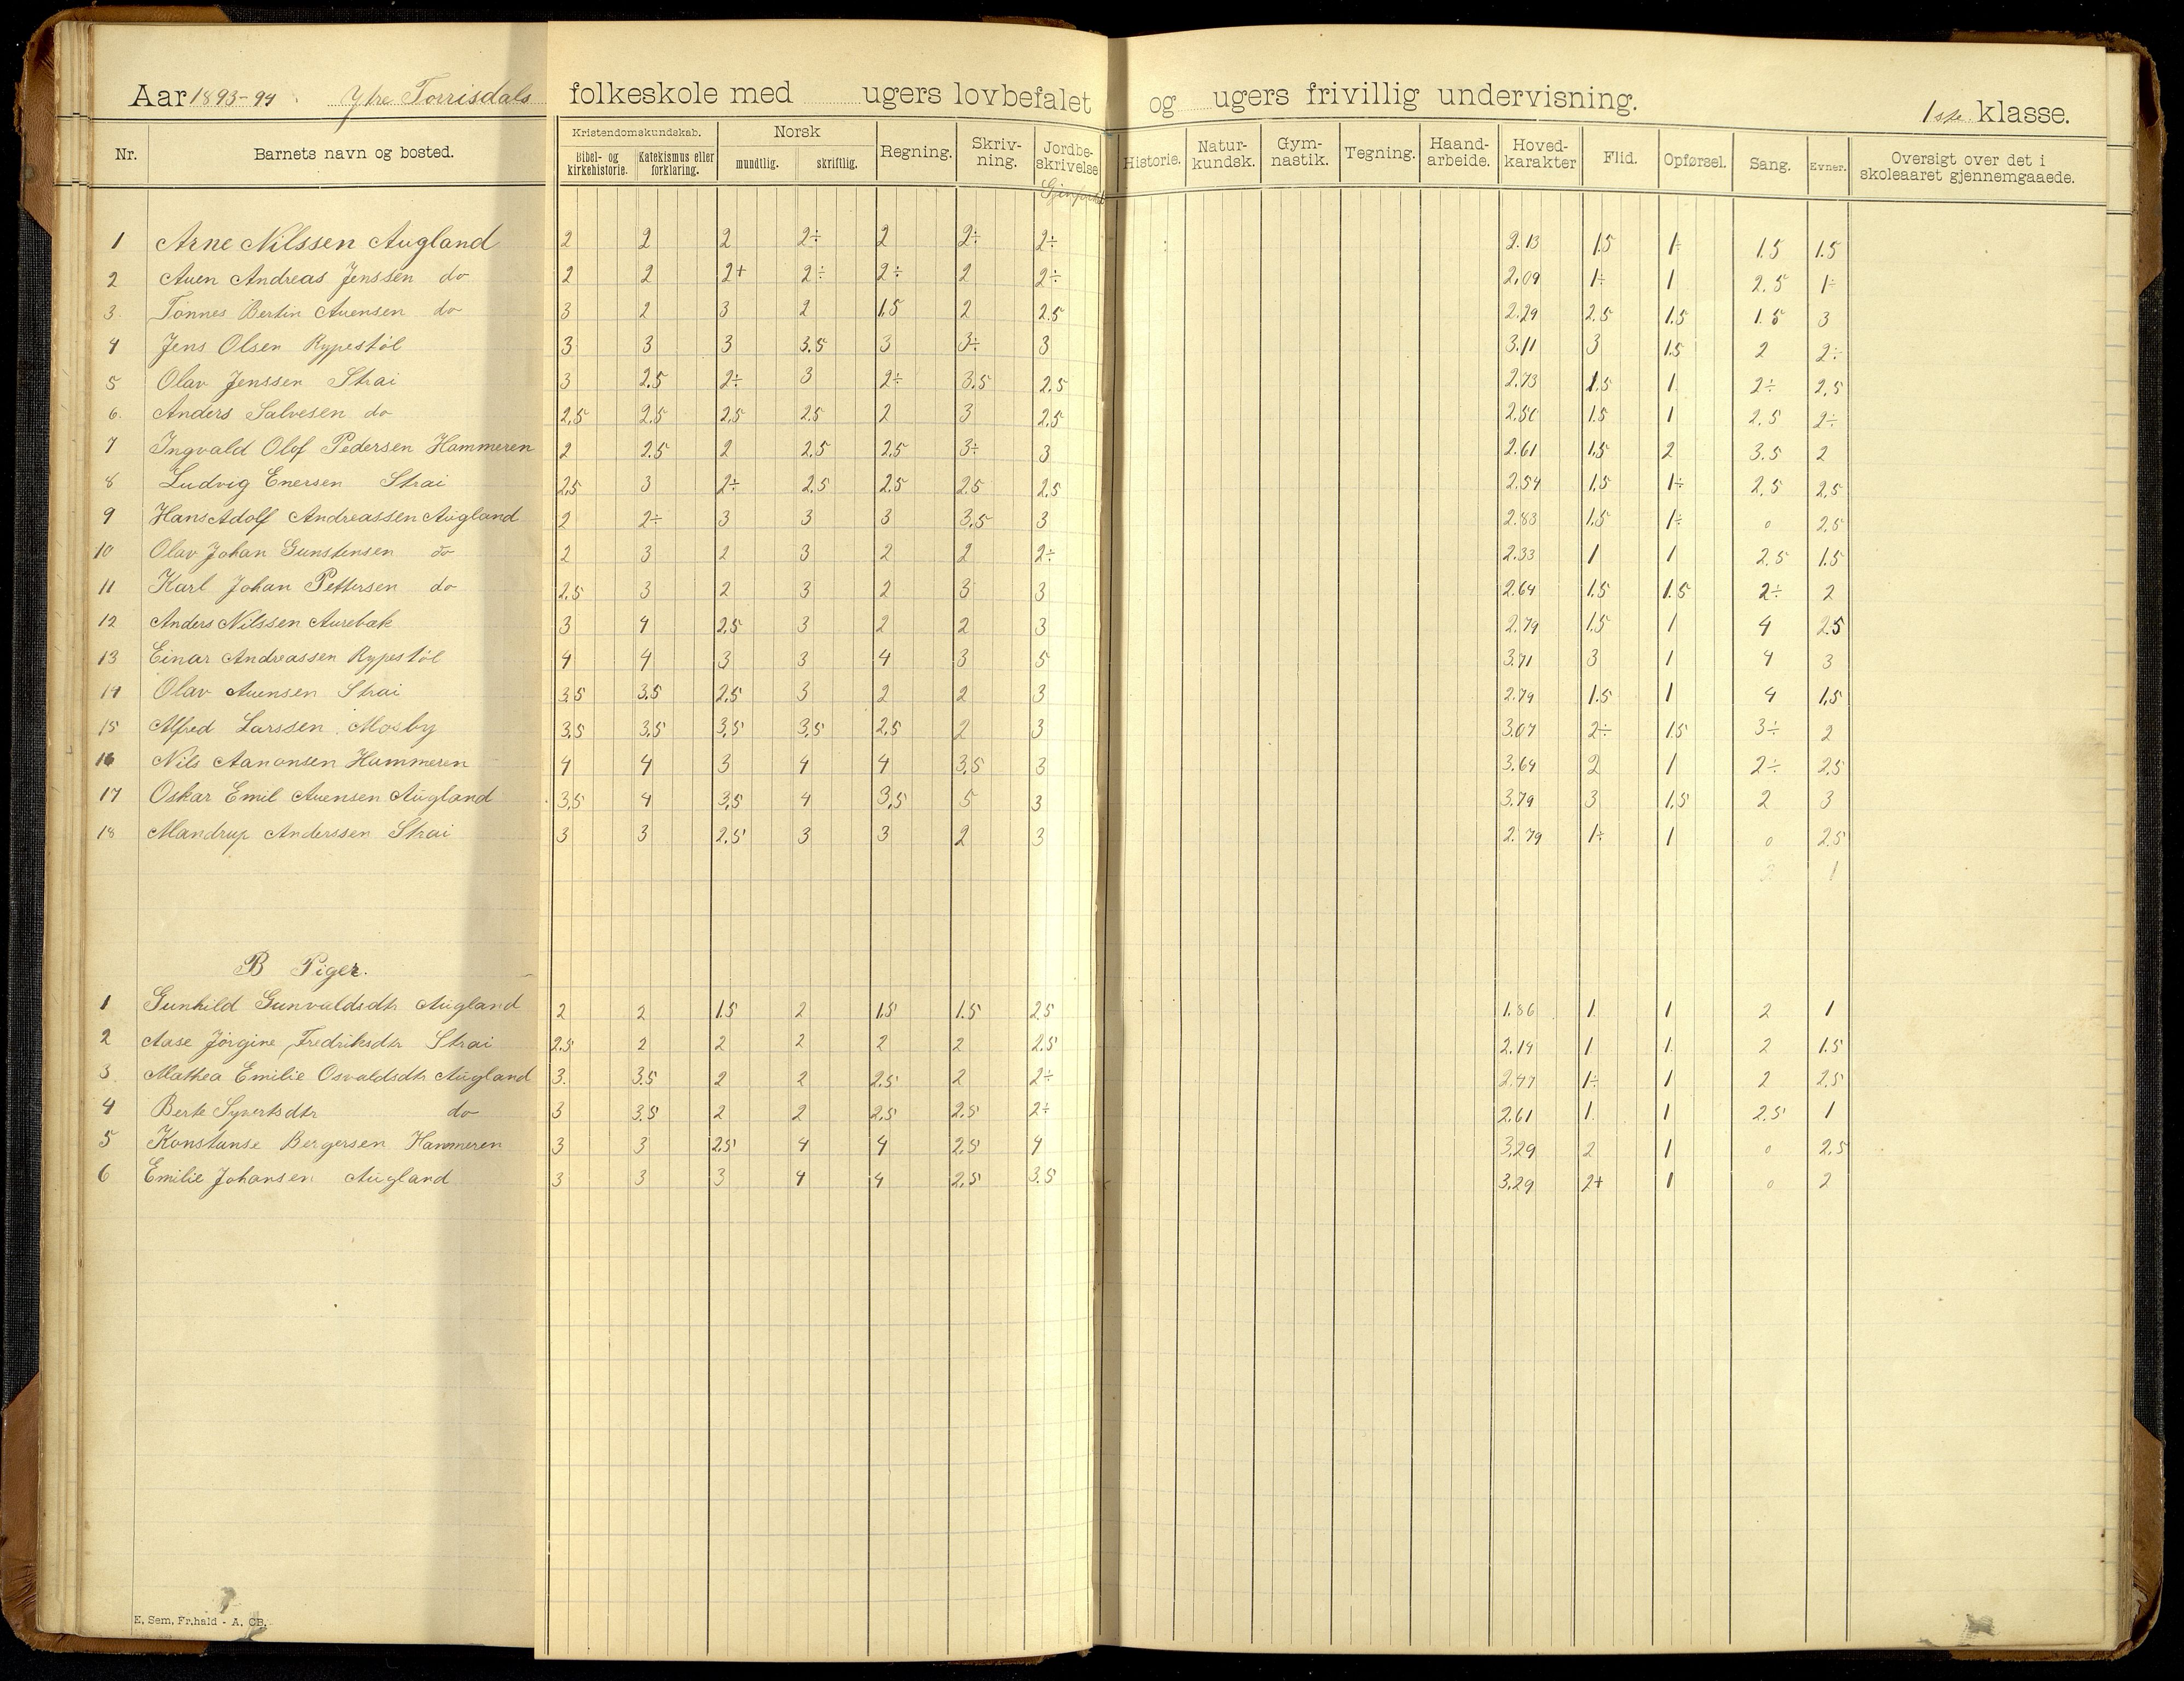 Aar 1893-94. Ytre Torrisdals folkeskole med ugers lovbefalet og ugers frivillig undervisning. 1ste klasse.
Nr. Barnets navn og bosted. Kristendomskundskab. Bibel- og kirkehistorie. Katekismus eller forklaring. Norsk mundtlig. skriftlig. Regning. Skriv-ning. Jordbe-skrivelse Historie. Natur-kundsk. Gym-nastik. Tegning. Haand-arbeide. Hoved-karakter Flid. Opførsel. Sang. Evner. Oversigt over det i skoleaaret gjennemgaaede.
1 Arne Nilssen Augland 2 2 2 2÷ 2 2÷ 2÷ 2.13 1.5 1÷ 1.5 1.5
2 Auen Andreas Jenssen do 2 2 2+ 2÷ 2÷ 2 2÷ 2,09 1÷ 1 2.5 1÷
3. Tønnes Bertin Auensen do 3 2 3 2 1,5 2 2.5 2.29 2.5 1.5 1.5 3
4 Jens Olsen Rypestøl 3 3 3 3.5 3 3÷ 3 3.11 3 1.5 2 2÷
5 Olav Jenssen Strai 3 2.5 2÷ 3 2÷ 3,5 2.5 2.73 1.5 1 2÷ 2,5
6. Anders Salvesen do 2,5 2,5 2,5 2.5 2 3 2.5 2.50 1.5 1 2.5 2÷
7 Ingvald Olof Pedersen Hammeren 2 2.5 2 2.5 2,5 3÷ 3 2.61 1.5 2 3.5 2
8 Ludvig Enersen Strai 2,5 3 2÷ 2.5 2.5 2.5 2.5 2.54 1.5 1÷ 2,5 2,5
9 Hans Adolf Andreassen Augland 2 2÷ 3 3 3 3,5 3 2.83 1,5 1÷ 0 2,5
10 Olav Johan Gunstensen do 2 3 2 3 2 2 2÷ 2.33 1 1 2.5 1.5
11 Karl Johan Pettersen do 2.5 3 2 3 2 3 3 2.64 1.5 1.5 2÷ 2
12 Anders Nilssen Aurebæk 3 4 2,5 3 2 2 3 2.79 1.5 1 4 2.5
13 Einar Andreassen Rypestøl 4 4 3 3 4 3 5 3.71 3 1 4 3
14 Olav Auensen Strai 3.5 3.5 2.5 3 2 2 3 2.79 1.5 1 4 1,5
15 Alfred Larssen Mosby 3,5 3,5 3,5 3,5 2,5 2 3 3.07 2÷ 1.5 3÷ 2
16 Nils Aanonsen Hammeren 4 4 3 4 4 3,5 3 3.64 2 1 2÷ 2.5
17 Oskar Emil Auensen Augland 3,5 4 3,5 4 3,5 5 3 3.79 3 1,5 2 3
18 Mandrup Anderssen Strai 3 3 2.5 3 3 2 3 2.79 1÷ 1 0 2.5
2 1
B Piger.
1 Gunhild Gunvaldsdtr Augland 2 2 1.5 2 1.5 1.5 2.5 1.86 1 1 2 1
2 Aase Jørgine Fredriksdtr Strai 2.5 2 2 2 2 2 2.5 2.14 1 1 2 1.5
3. Mathea Emilie Osvaldsdtr Augland 3 3.5 2 2 2.5 2 2÷ 2.47 1÷ 1 2 2,5
4 Berte Syvertsdtr do 3 3.5 2 2 2.5 2.5 2÷ 2.61 1 1 2.5 1
5 Konstanse Bergersen Hammeren 3 3 2.5 4 4 2.5 4 3,29 2 1 0 2.5
6 Emilie Johansen Augland 3 3 3 4 4 2.5 3.5 3.29 2+ 1 0 2
E. Sem, Fr.hald - A. CB.